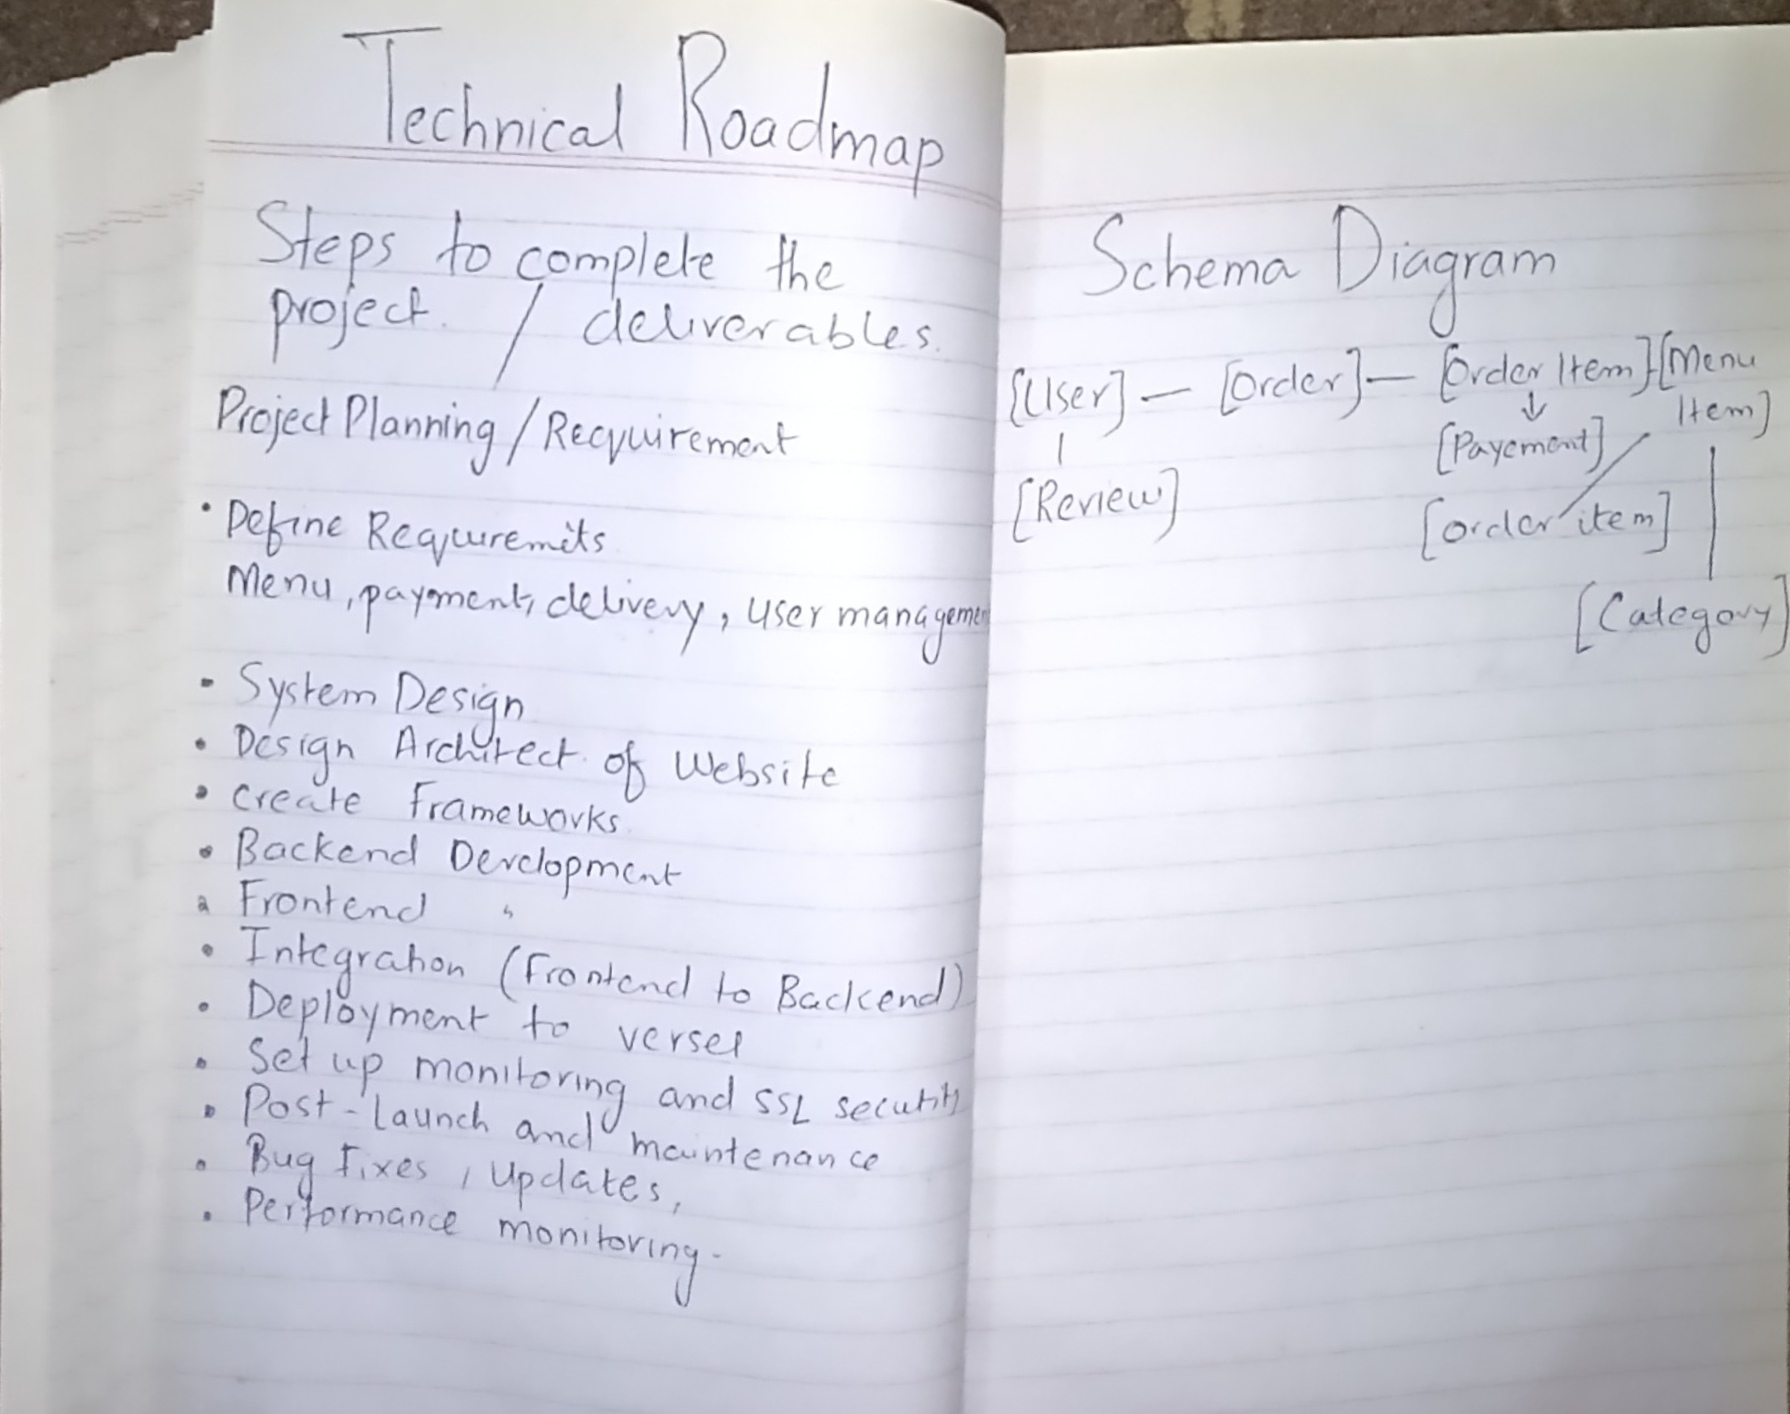 Technical Roadmap
Steps to complete the
project. / deliverables.
Project Planning / Recquirement
• Define Requuremits
Menu, payment, delivery, user managemen
• System Design
• Design Architect. of Website
• Create Frameworks
• Backend Development
• Frontend "
• Integration (Frontend to Backend)
• Deployment to versel
• Set up monitoring and SSL security
• Post-Launch and maintenance
• Bug Fixes, Updates,
• Performance monitoring.
Schema Diagram
[User] — [Order] — [Order Item] [Menu
Item]
↓
[Payement]
[Review]
[order item]
[Category]